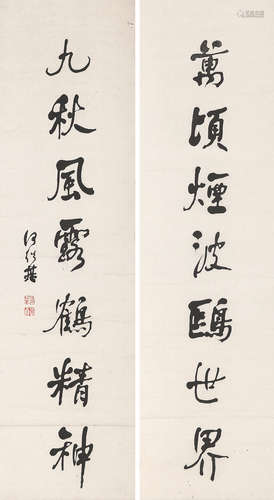 萬頃煙波鷗世界
九秋風露鶴精神
何紹基